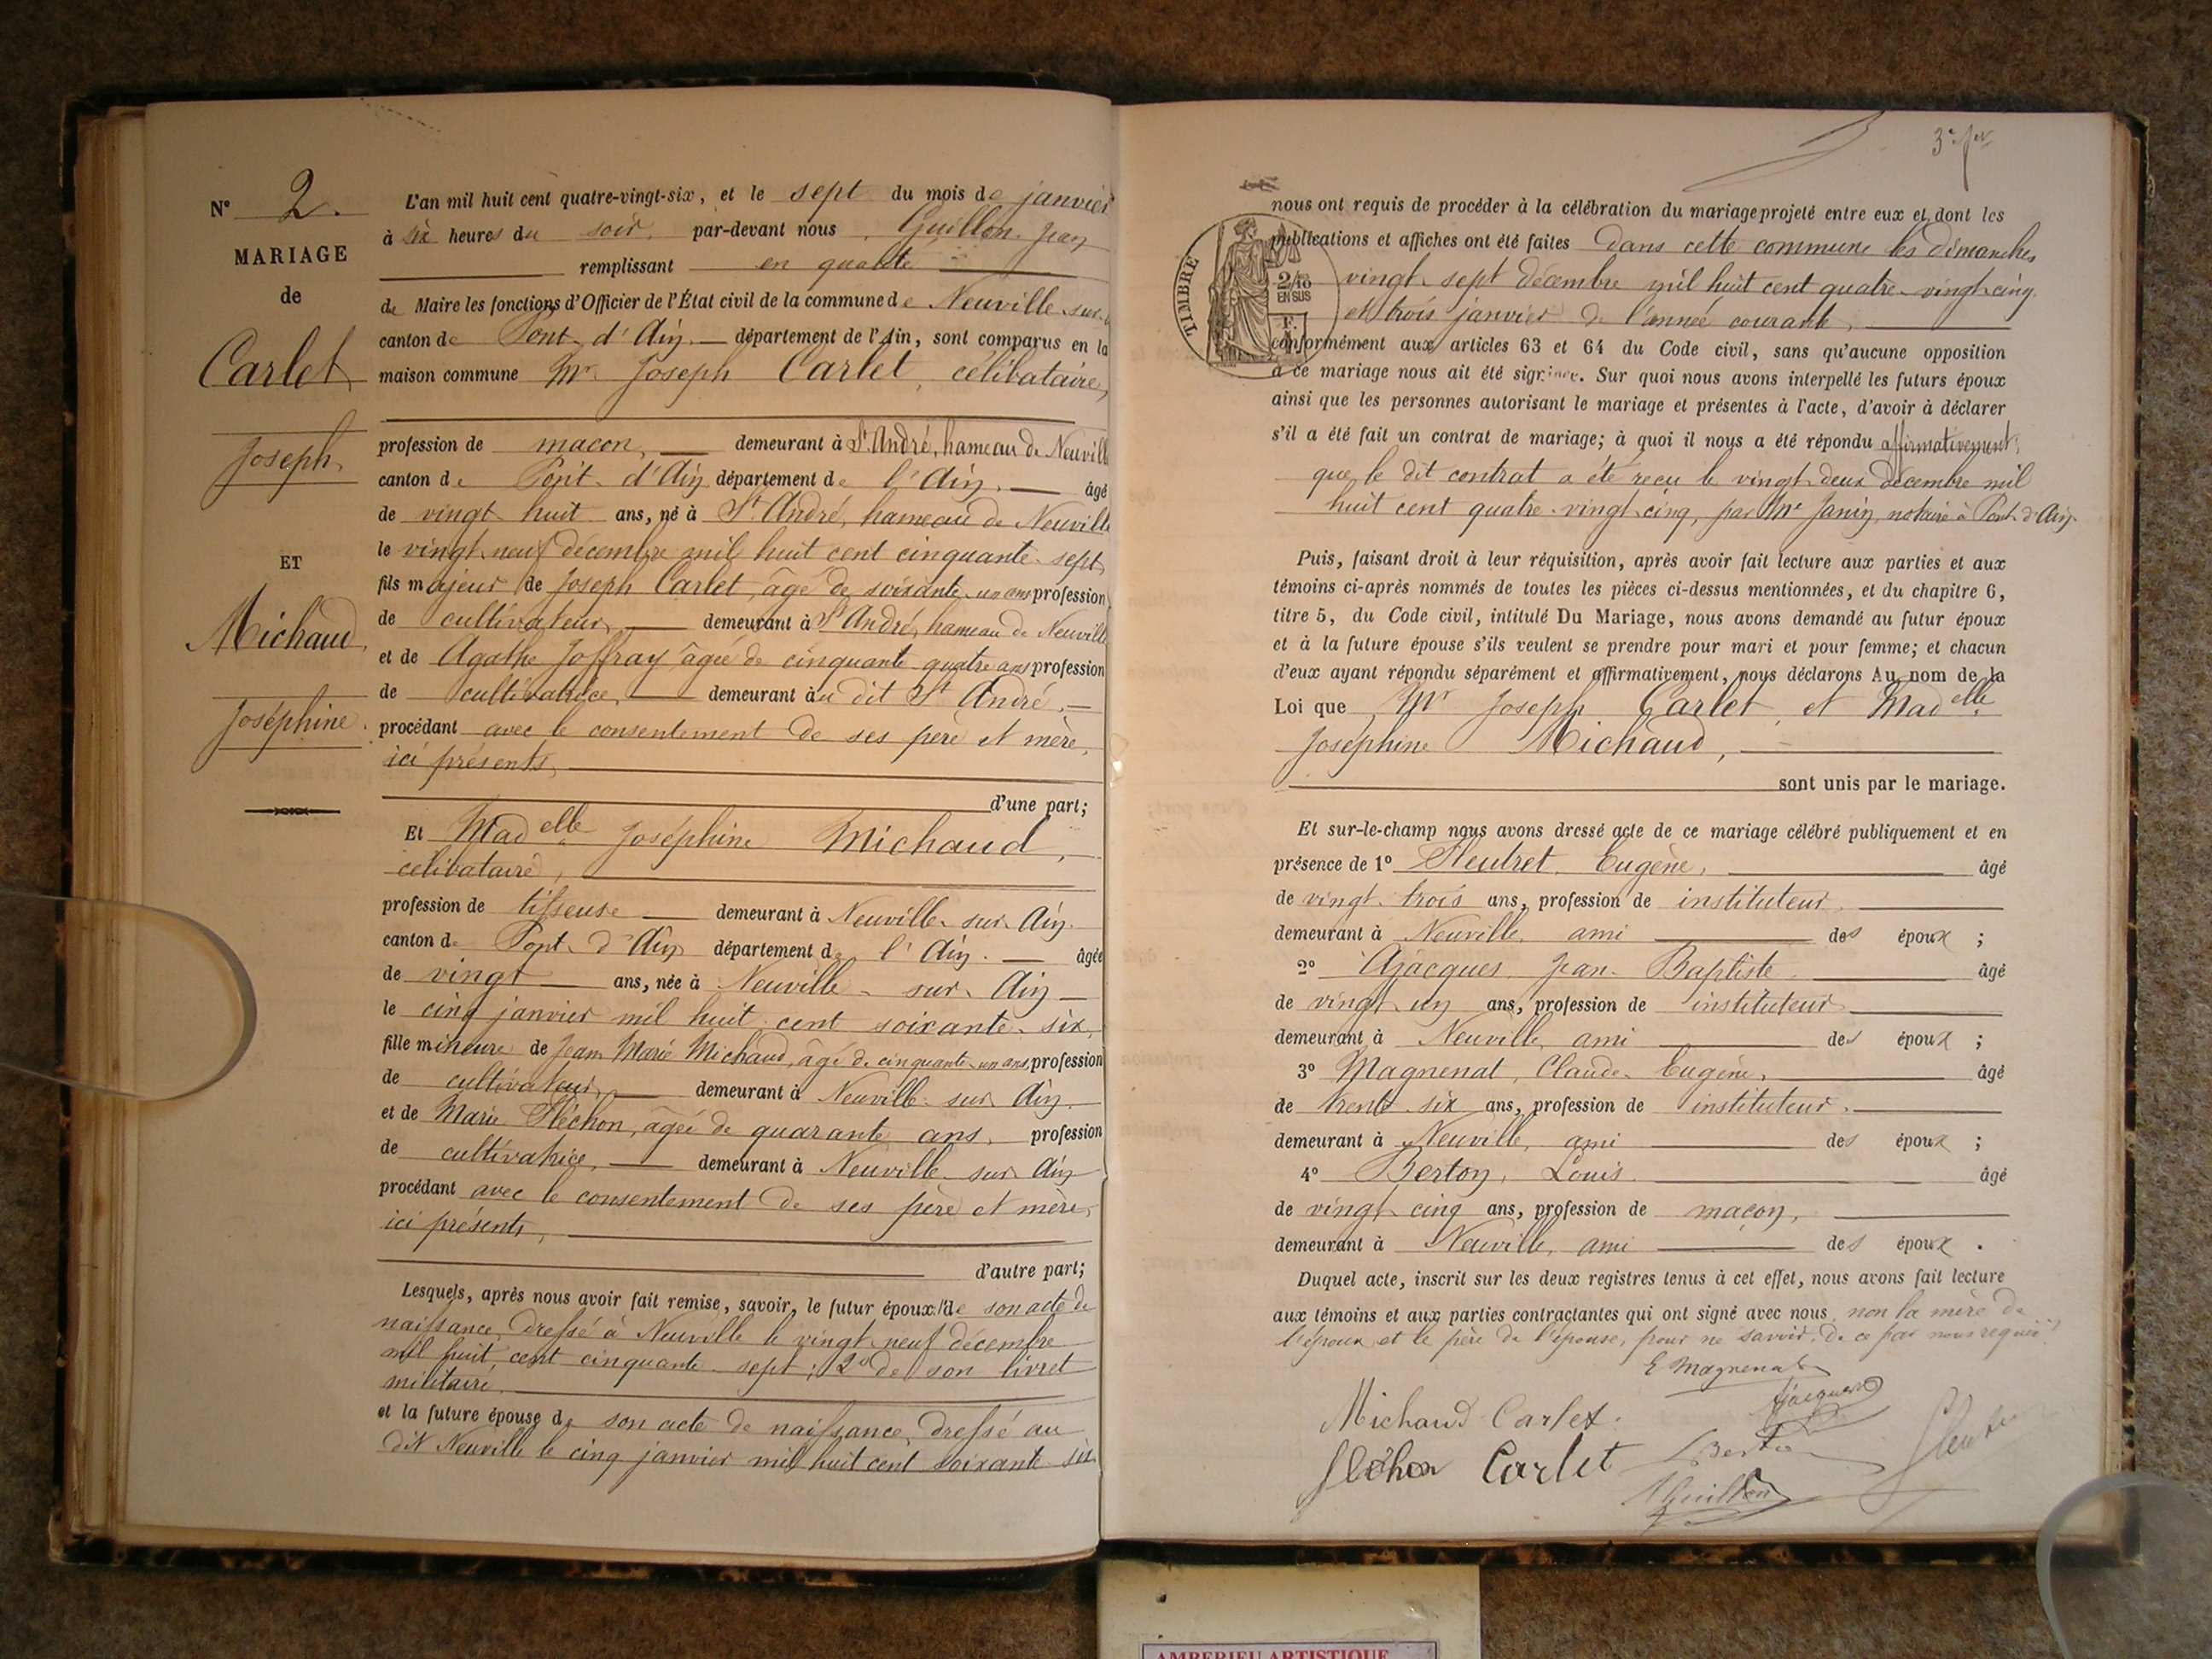 N° 2.
MARIAGE
de
Carlet
Joseph,
ET
Michaud,
Joséphine.
L'an mil huit cent quatre-vingt-six, et le sept du mois de janvier
à six heures du soir, par-devant nous, Guillon Jean
remplissant en qualité
de Maire les fonctions d'Officier de l'État civil de la commune de Neuville-sur-
canton de Pont-d'Ain département de l'Ain, sont comparus en la
maison commune Mr Joseph Carlet, célibataire,
profession de maçon, demeurant à St André, hameau de Neuville
canton de Pont-d'Ain département de l'Ain. âgé
de vingt-huit ans, né à St André, hameau de Neuville
le vingt-neuf décembre mil huit cent cinquante-sept,
fils majeur de Joseph Carlet, âgé de soixante-un ans profession
de cultivateur, demeurant à St André, hameau de Neuville
et de Agathe Joffray âgée de cinquante-quatre ans profession
de cultivatrice, demeurant au dit St André,
procédant avec le consentement de ses père et mère,
ici présents,
d'une part;
Et Madelle Joséphine Michaud,
célibataire,
profession de tisseuse demeurant à Neuville-sur-Ain.
canton de Pont-d'Ain département de l'Ain. âgée
de vingt ans, née à Neuville-sur-Ain
le cinq janvier mil huit cent soixante-six,
fille mineure de Jean Marie Michaud, âgé de cinquante-un ans, profession
de cultivateur, demeurant à Neuville-sur-Ain.
et de Marie Fléchon, âgée de quarante ans, profession
de cultivatrice, demeurant à Neuville-sur-Ain
procédant avec le consentement de ses père et mère,
ici présents,
d'autre part;
Lesquels, après nous avoir fait remise, savoir, le futur époux: 1° de son acte de
naissance, dressé à Neuville le vingt-neuf décembre
mil huit cent cinquante-sept; 2° de son livret
militaire.
et la future épouse de son acte de naissance, dressé au
dit Neuville le cinq janvier mil huit cent soixante-six
3e
TIMBRE
2/10
EN SUS
nous ont requis de procéder à la célébration du mariage projeté entre eux et dont les
publications et affiches ont été faites dans cette commune les dimanches
vingt-sept décembre mil huit cent quatre-vingt-cinq
et trois janvier de l'année courante,
conformément aux articles 63 et 64 du Code civil, sans qu'aucune opposition
à ce mariage nous ait été signifiée. Sur quoi nous avons interpellé les futurs époux
ainsi que les personnes autorisant le mariage et présentes à l'acte, d'avoir à déclarer
s'il a été fait un contrat de mariage; à quoi il nous a été répondu affirmativement,
que le dit contrat a été reçu le vingt-deux décembre mil
huit cent quatre-vingt-cinq, par Me Janin, notaire à Pont-d'Ain.
Puis, faisant droit à leur réquisition, après avoir fait lecture aux parties et aux
témoins ci-après nommés de toutes les pièces ci-dessus mentionnées, et du chapitre 6,
titre 5, du Code civil, intitulé Du Mariage, nous avons demandé au futur époux
et à la future épouse s'ils veulent se prendre pour mari et pour femme; et chacun
d'eux ayant répondu séparément et affirmativement, nous déclarons Au nom de la
Loi que Mr Joseph Carlet, et Madelle
Joséphine Michaud,
sont unis par le mariage.
Et sur-le-champ nous avons dressé acte de ce mariage célébré publiquement et en
présence de 1° Fleutret, Eugène, âgé
de vingt-trois ans, profession de instituteur
demeurant à Neuville, ami des époux ;
2° Ajacques, Jean-Baptiste âgé
de vingt-un ans, profession de instituteur
demeurant à Neuville, ami des époux ;
3° Magnenat, Claude-Eugène, âgé
de trente-six ans, profession de instituteur.
demeurant à Neuville, ami des époux ;
4° Berton, Louis âgé
de vingt-cinq ans, profession de maçon,
demeurant à Neuville, ami des époux .
Duquel acte, inscrit sur les deux registres tenus à cet effet, nous avons fait lecture
aux témoins et aux parties contractantes qui ont signé avec nous, non la mère de
l'époux et le père de l'épouse, pour ne savoir, de ce par nous requis
E Magnenat
Michaud Carlet
Ajacques
Fléchon Carlet Berton
Guillon
AMBERIEU ARTISTIQUE